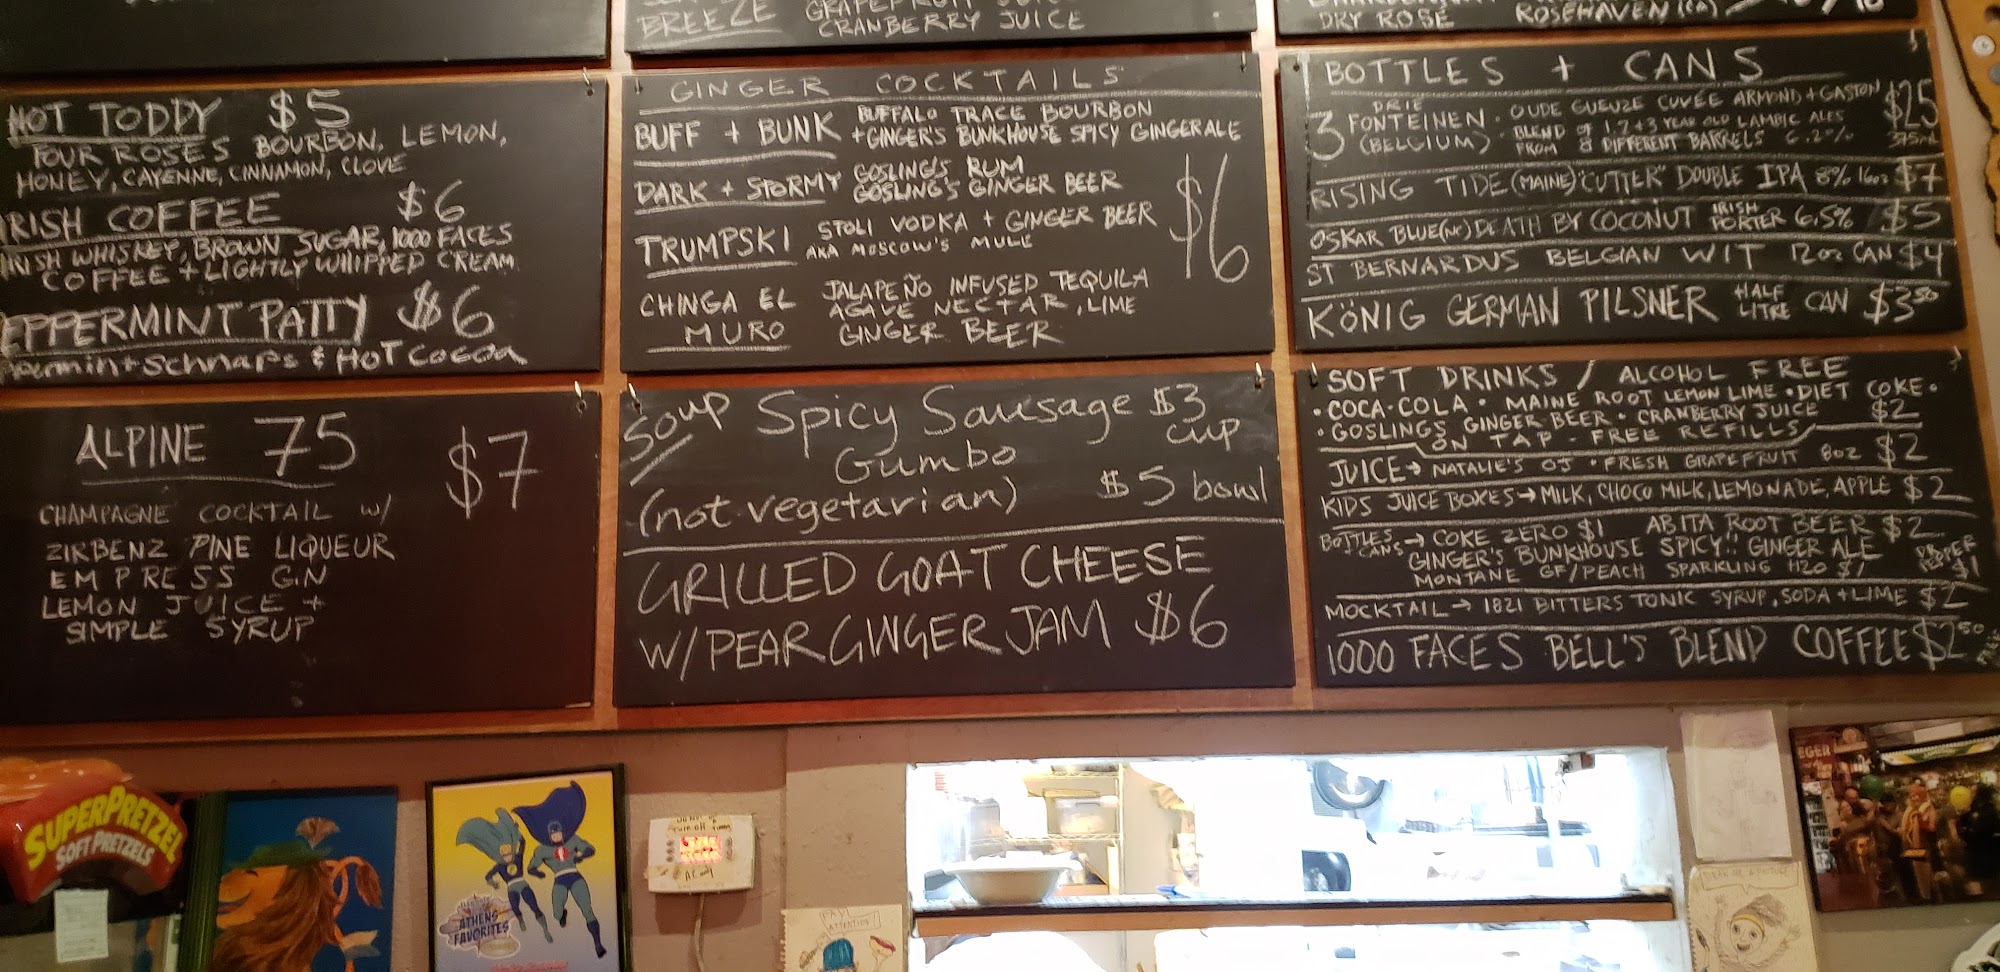 BREEZE
CRANBERRY JUICE
DRY ROSE ROSEHAVEN (CA)
HOT TODDY $5
FOUR ROSES BOURBON, LEMON,
HONEY, CAYENNE, CINNAMON, CLOVE
IRISH COFFEE $6
IRISH WHISKEY, BROWN SUGAR, 1000 FACES
COFFEE + LIGHTLY WHIPPED CREAM
PEPPERMINT PATTY $6
Schnaps & HOT COCOA
GINGER COCKTAILS
BUFF + BUNK BUFFALO TRACE BOURBON
+ GINGER'S BUNKHOUSE SPICY GINGER ALE
DARK + STORMY GOSLING'S RUM
GOSLING'S GINGER BEER
$6
TRUMPSKI STOLI VODKA + GINGER BEER
AKA MOSCOW'S MULE
CHINGA EL MURO JALAPEÑO INFUSED TEQUILA
AGAVE NECTAR, LIME
GINGER BEER
BOTTLES + CANS
3 DRIE FONTEINEN (BELGIUM) • OUDE GUEUZE CUVÉE ARMOND + GASTON $25
• BLEND OF 1, 2 + 3 YEAR OLD LAMBIC ALES
FROM 8 DIFFERENT BARRELS 6.2% 375ML
RISING TIDE (MAINE) "CUTTER" DOUBLE IPA 8% 16oz $7
OSKAR BLUE (NC) DEATH BY COCONUT IRISH PORTER 6.5% $5
ST BERNARDUS BELGIAN WIT 12oz CAN $4
KÖNIG GERMAN PILSNER HALF LITRE CAN $3.50
ALPINE 75 $7
CHAMPAGNE COCKTAIL W/
ZIRBENZ PINE LIQUEUR
EMPRESS GIN
LEMON JUICE +
SIMPLE SYRUP
SOUP Spicy Sausage $3 cup
Gumbo
(not vegetarian) $5 bowl
GRILLED GOAT CHEESE
W/ PEAR GINGER JAM $6
SOFT DRINKS / ALCOHOL FREE
• COCA-COLA • MAINE ROOT LEMON LIME • DIET COKE •
• GOSLINGS GINGER BEER • CRANBERRY JUICE $2
ON TAP - FREE REFILLS
JUICE → NATALIE'S OJ • FRESH GRAPEFRUIT 8oz $2
KIDS JUICE BOXES → MILK, CHOCO MILK, LEMONADE, APPLE $2
BOTTLES CANS → COKE ZERO $1 ABITA ROOT BEER $2
GINGER'S BUNKHOUSE SPICY GINGER ALE
MONTANE GF/PEACH SPARKLING H2O $1 DR PEPPER $1
MOCKTAIL → 1821 BITTERS TONIC SYRUP, SODA + LIME $2
1000 FACES BELL'S BLEND COFFEE $2.50
SUPERPRETZEL
SOFT PRETZELS
ATHENS
FAVORITES
PAY
ATTENTION!
EGER